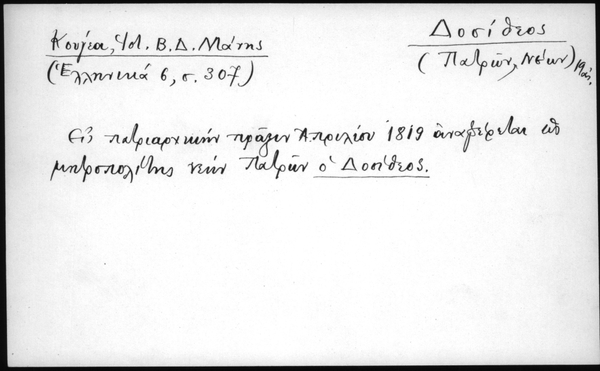 Κουγέα, Β. Δ. Μάνης
(Ἑλληνικά 6, σ. 307)
Δοσίθεος
(Πατρῶν, Νέων) 19 αἰ.
Εἰς πατριαρχικήν πρᾶξιν Ἀπριλίου 1819 ἀναφέρεται ὡς
μητροπολίτης νέων Πατρῶν ὁ Δοσίθεος.